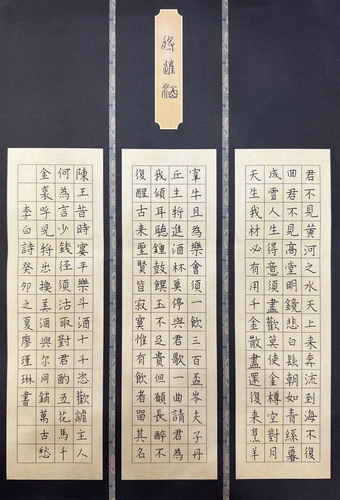 將進酒
君不見黃河之水天上來奔流到海不復
回君不見高堂明鏡悲白髮朝如青絲暮
成雪人生得意須盡歡莫使金樽空對月
天生我材必有用千金散盡還復来烹羊
宰牛且為樂會須一飲三百盃岑夫子丹
丘生將進酒杯莫停與君歌一曲請君為
我傾耳聽鐘鼓饌玉不足貴但願長醉不
復醒古来聖賢皆寂寞惟有飲者留其名
陳王昔時宴平樂斗酒十千恣歡謔主人
何為言少錢徑須沽取對君酌五花馬千
金裘呼兒將出換美酒與尔同銷萬古愁
李白詩癸卯之夏廖瑾琳書